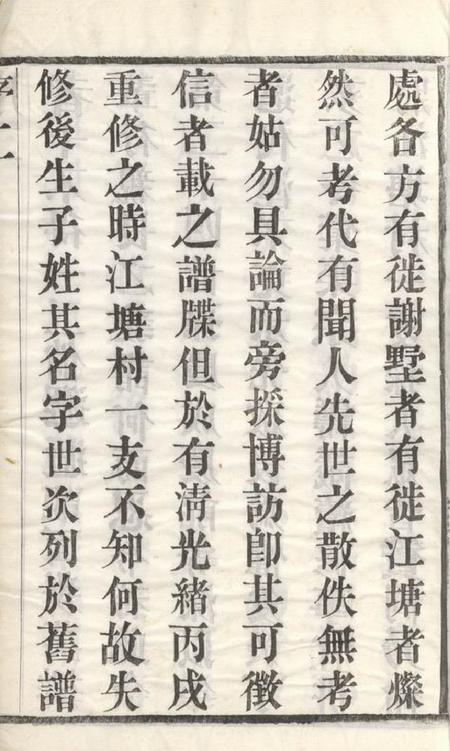 處各方有徙謝墅者有徙江塘者燦
然可考代有聞人先世之散佚無考
者姑勿具論而旁採博訪卽其可徵
信者載之譜牒但於有淸光緖丙戌
重修之時江塘村一支不知何故失
修後生子姓其名字世次列於舊譜
序 二